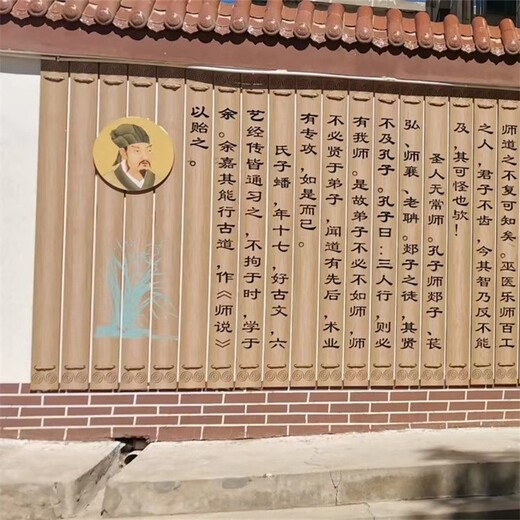 师道之不复可知矣。巫医乐师百工
之人，君子不齿，今其智乃反不能
及，其可怪也欤！
圣人无常师。孔子师郯子、苌
弘、师襄、老聃。郯子之徒，其贤
不及孔子。孔子曰：三人行，则必
有我师。是故弟子不必不如师，师
不必贤于弟子，闻道有先后，术业
有专攻，如是而已。
氏子蟠，年十七，好古文，六
艺经传皆通习之，不拘于时，学于
余。余嘉其能行古道，作《师说》
以贻之。